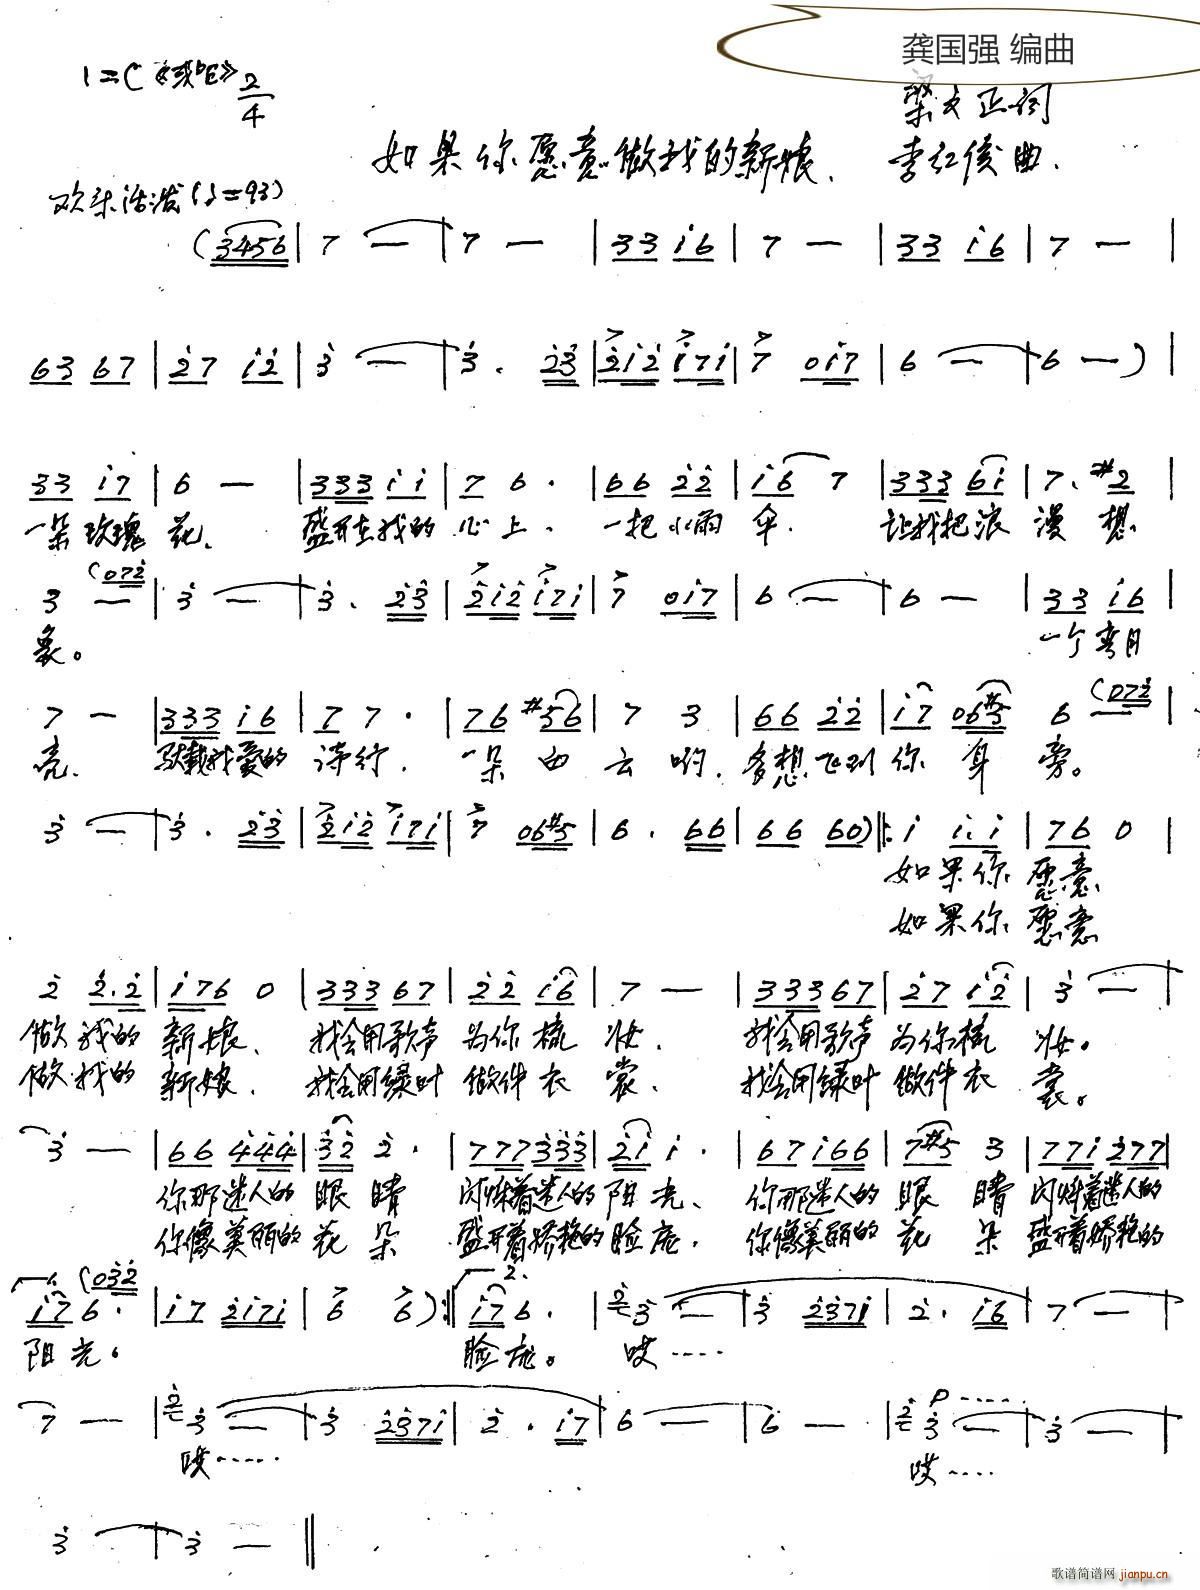 龚国强 编曲
1=C《或♭E》2/4
梁文正词
如果你愿意做我的新娘、 李红俊曲、
欢乐活泼(♩=93)
(3456| 7 — | 7 — | 33 i6 | 7 — | 33 i6 | 7 — |
63 67 | 27 i2 | 3 — | 3. 23 | 2i2 i7i | 7 0i7 | 6 — | 6 —) |
33 i7 | 6 — | 333 ii | 7 6. | 66 22 | i6 7 | 333 6i | 7. #2 |
一朵玫瑰 花、 盛开在我的 心上、 一把小雨 伞. 让我把浪 漫想
(072
3 — | 3 — | 3. 23 | 2i2 i7i | 7 0i7 | 6 — | 6 — | 33 i6 |
象。 一个弯月
7 — | 333 i6 | 7 7. | 76 #56 | 7 3 | 66 22 | i7 06#5 | 6 (072 |
亮. 驮载我爱的 诗行. 一朵白云哟, 多想飞到你身旁。
3 — | 3. 23 | 2i2 i7i | 7 06#5 | 6. 66 | 66 60) ‖: i i.i | 76 0 |
如果你 愿意、
如果你 愿意
2 2.2 | i76 0 | 333 67 | 22 i6 | 7 — | 33367 | 27 i2 | 3 — |
做我的 新娘、 我会用歌声 为你梳 妆. 我会用歌声 为你梳 妆。
做我的 新娘. 我会用绿叶 做件衣 裳、 我会用绿叶 做件衣 裳。
3 — | 66 444 | 32 2. | 777333 | 2i i. | 67 i66 | 7#5 3 | 77i 277 |
你那迷人的 眼睛 闪烁着迷人的 阳光、 你那迷人的 眼睛 闪烁着迷人的
你像美丽的 花朵 盛开着娇艳的 脸庞. 你像美丽的 花朵 盛开着娇艳的
1. (032 2.
i7 6. | i7 2i7i | 6 6) :‖ i7 6. | 3 — | 3 237i | 2. i6 | 7 — |
阳光。 脸庞。 哎……
7 — | 3 — | 3 237i | 2. i7 | 6 — | 6 — | 3 — | 3 — |
P……
哎…… 哎……
3 — | 3 — ‖
歌谱简谱网 jianpu.cn